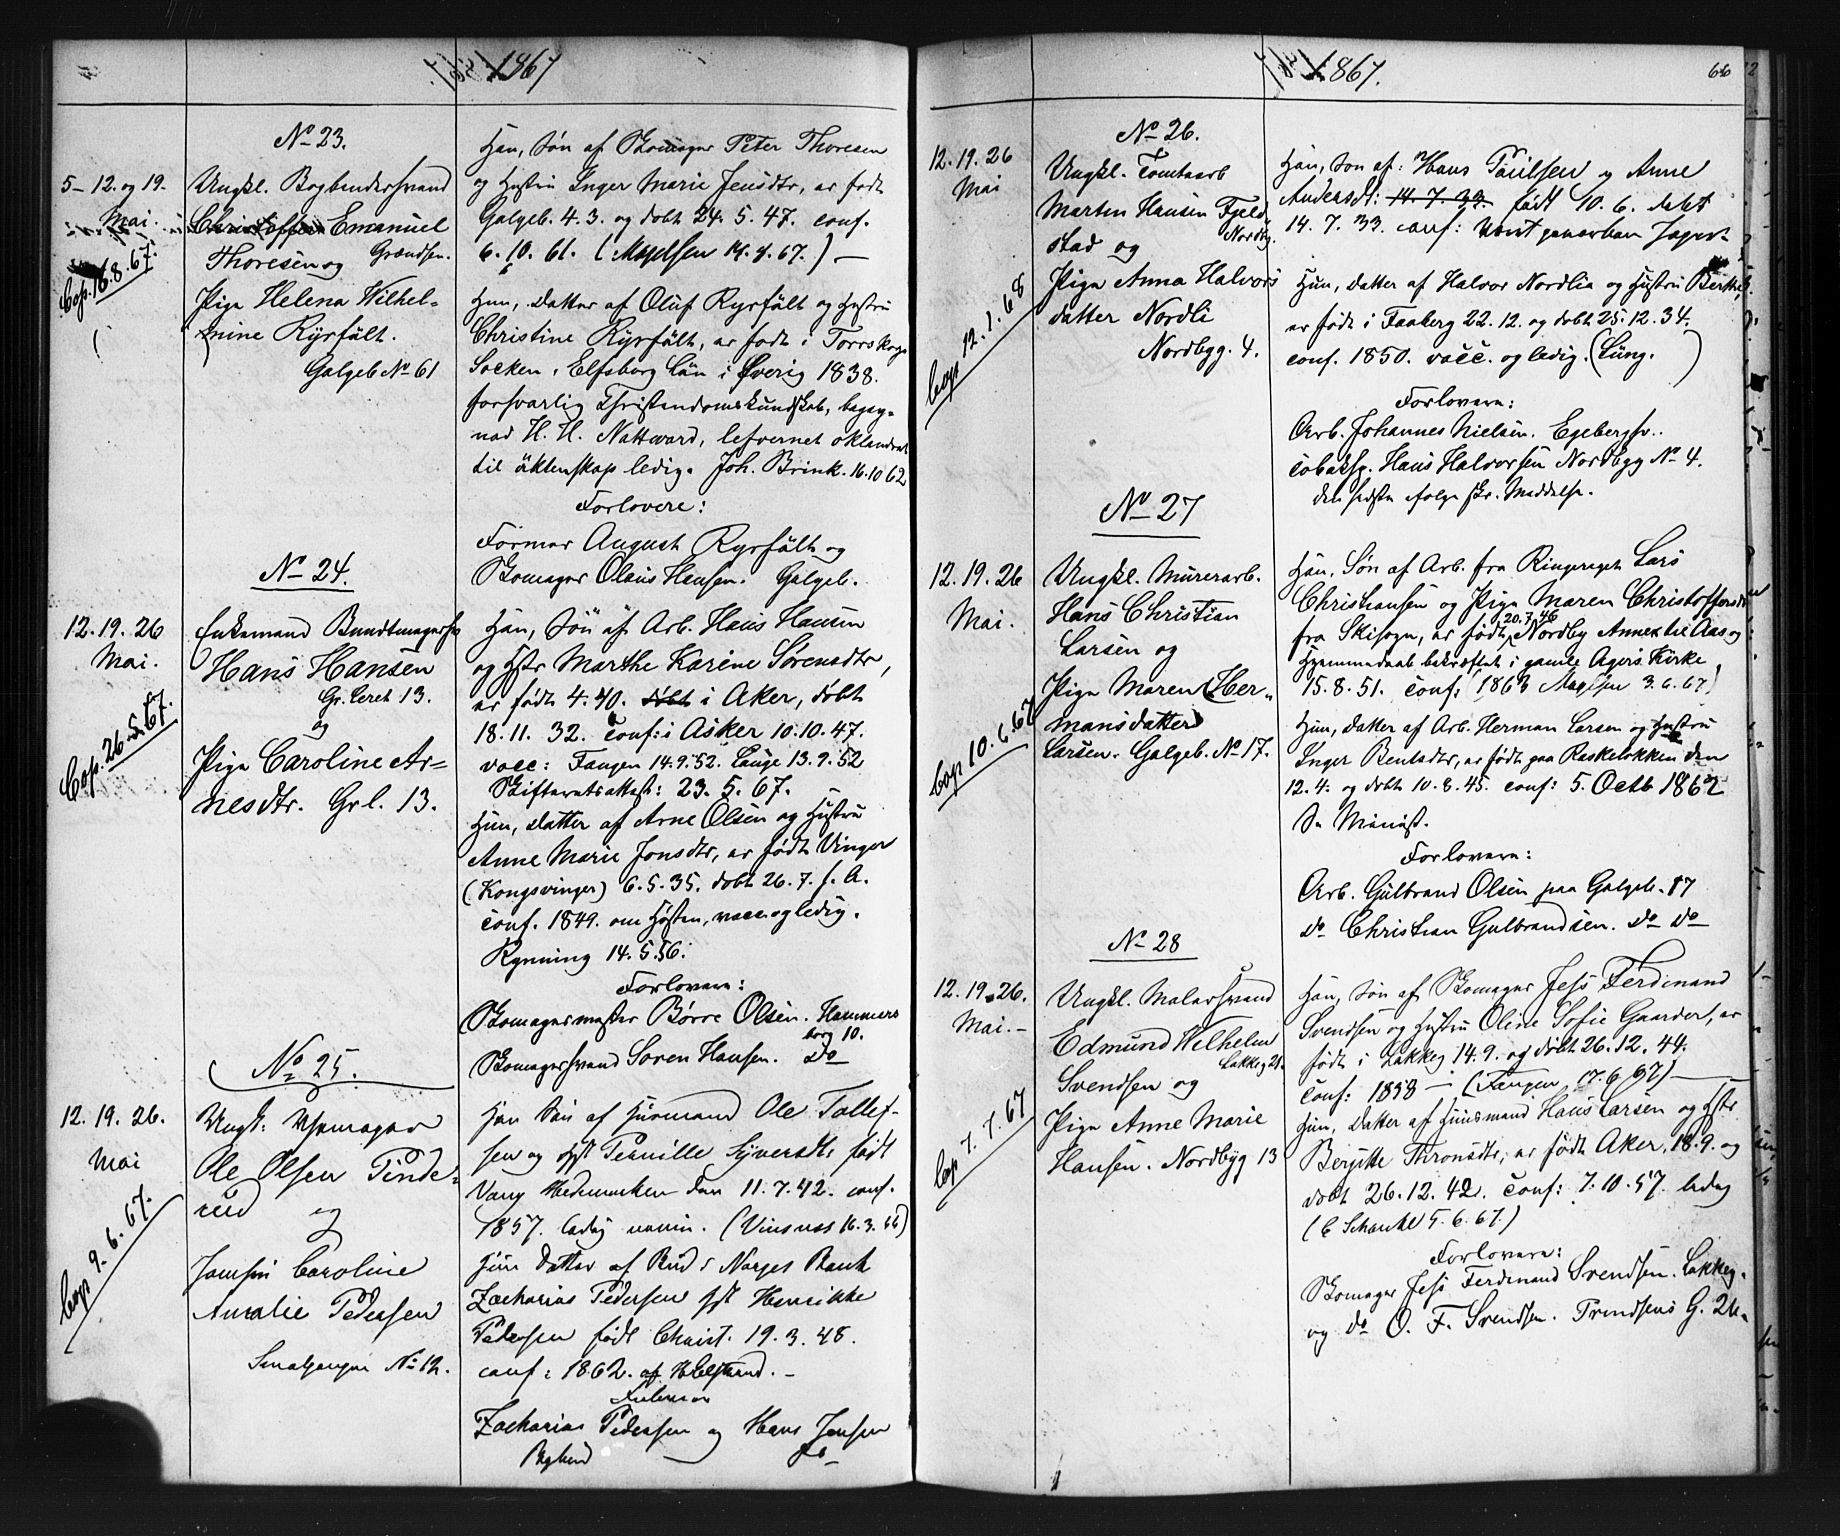 1867
No 23.
5-12. og 19-
Mai.
Cop. 16.8.67.
Ungkl. Bogbindersvend
Christoffer Emanuel
Thoresen og Grændsen.
Pige Helena Wilhel-
mine Ryrfält.
Galgeb No 61
Han, Søn af Skomager Peter Thoresen
og Hustru Inger Marie Jensdtr, er født
Galgeb. 4.3. og døbt 24.5.47. conf.
6.10.61. ( 14.4.67.) —
Hun, Datter af Oluf Ryrfält og Hustru
Christine Ryrfält, er født i Torrskogs
Socken, Elfsborg Län i Sverig 1838.
forsvarlig Christendomskundskab, begag-
nad H. H. Nattward, lefvernet oklandrat
til äktenskap ledig. Joh. Brink. 16.10 62
Forlovere:
Former August Ryrfält og
Skomager Olaus Hansen. Galgeb.
No 24.
12. 19. 26
Mai.
Cop. 26.5.67.
Enkemand Bundtmagersv
Hans Hansen
Gr. Leret 13.
og
Pige Caroline Ar-
nesdtr. Grl. 13.
Han, Søn af Arb. Hans Hansen
og Hstr Marthe Karine Sørensdtr,
er født 4.40. døbt i Aker, døbt
18.11. 32. Conf: i Asker 10.10.47.
vacc: Fangen 14.9.52. Lange 13.9.52
Skifteretsattest: 23.5.67.
Hun, Datter af Arne Olsen og Hustru
Anne Marie Jonsdtr, er født Vinger
(Kongsvinger) 6.5.35. døbt 26.7. s. A.
conf. 1849. om Høsten, vacc og ledig.
Rynning 14.5.56.
Forlovere:
Skomagermester Børre Olsen. Hammers
borg 10.
Skomagersvend Søren Hansen. Do
No 25.
12. 19. 26.
Mai
Cop 9.6.67.
Ungk:
Ole Olsen Tinde-
rud og
Caroline
Amalie Pedersen
Smalgangen No 12.
Han Søn af Huusmand Ole Tollef-
sen og Hst Pernille Syversdtr født
Vang Hedemarken den 11.7.42. conf.
1857. ledig (Vinsnes 16.3.66)
Hun Datter af Bud i Norges Bank
Zacharias Pedersen Hst Henrikke
Pedersen født Christ. 19.3.48.
conf: 1862. af
Forlovere
Zacharias Pedersen og Hans Jensen
Do
1867. 66
No 26.
12. 19. 26
Mai
Cop 12.1.68
Ungkl. Tomtearb
Marten Hansen Fjeld
stad og Nordby.
Pige Anna Halvors
datter Nordli
Nordbyg. 4.
Han, Søn af: Hans Paulsen og Anne
Andersdt: 14.7.33. født 10.6. døbt
14.7.33. conf:
Hun, Datter af Halvor Nordlia og Hustru Berthe,
er født i Faaberg 22.12. og døbt 25.12.34.
conf. 1850. vacc. og ledig. (Lüng. )
Forlovere:
Arb. Johannes Nielsen. Egebergsv..
Tobaksp. Hans Halvorsen Nordbyg No 4.
den sidste ifølge skr. Meddelse.
No 27
12. 19. 26
Mai.
Cop 10.6.67
Ungkl. Murerarb.
Hans Christian
Larsen og
Pige Maren Her-
mansdatter
Larsen. Galgeb. No 17.
Han, Søn af Arb. fra Ringeriget Lars
Christiansen og Pige Maren Christoffersdt
20.7.46
fra Skisogn, er født, Nordby Annex til Aas og
Hjemmedaab bekræftet i gamle Agers Kirke
15.8.51. Conf: 1863 3.6.67)
Hun, Datter af Arb. Herman Larsen og Hustru
Inger Bentsdtr, er født paa Raskeløkken den
12.4. og døbt 10.8.45. conf: 5. Octb 1862
Forlovere:
Arb. Gulbrand Olsen paa Galgeb. 17
do Christian Gulbrandsen. Do Do
No 28
12. 19. 26.
Mai. -
Cop 7.7.67
Ungkl. Malersvend
Edmund Wilhelm
Lakkeg 21.
Svendsen og
Pige Anne Marie
Hansen. Nordbyg 13
Han, Søn af Skomager Jess Ferdinand
Svendsen og Hustru Oline Sofie Gaarder, er
født i Lakkeg 14.9. og døbt 26.12.44.
Conf: 1858 — (Fangen 17.6 67) —
Hun, Datter af Huusmand Hans Larsen og Hstr
Berjitte Thronsdtr, er født Aker 18.9. og
døbt 26.12.42. Conf: 7.10.57. ledig
(C Schanke 5.6.67.)
Forlovere:
Skomager Jess Ferdinand Svendsen. Lakkeg.
og do O. F. Svendsen.